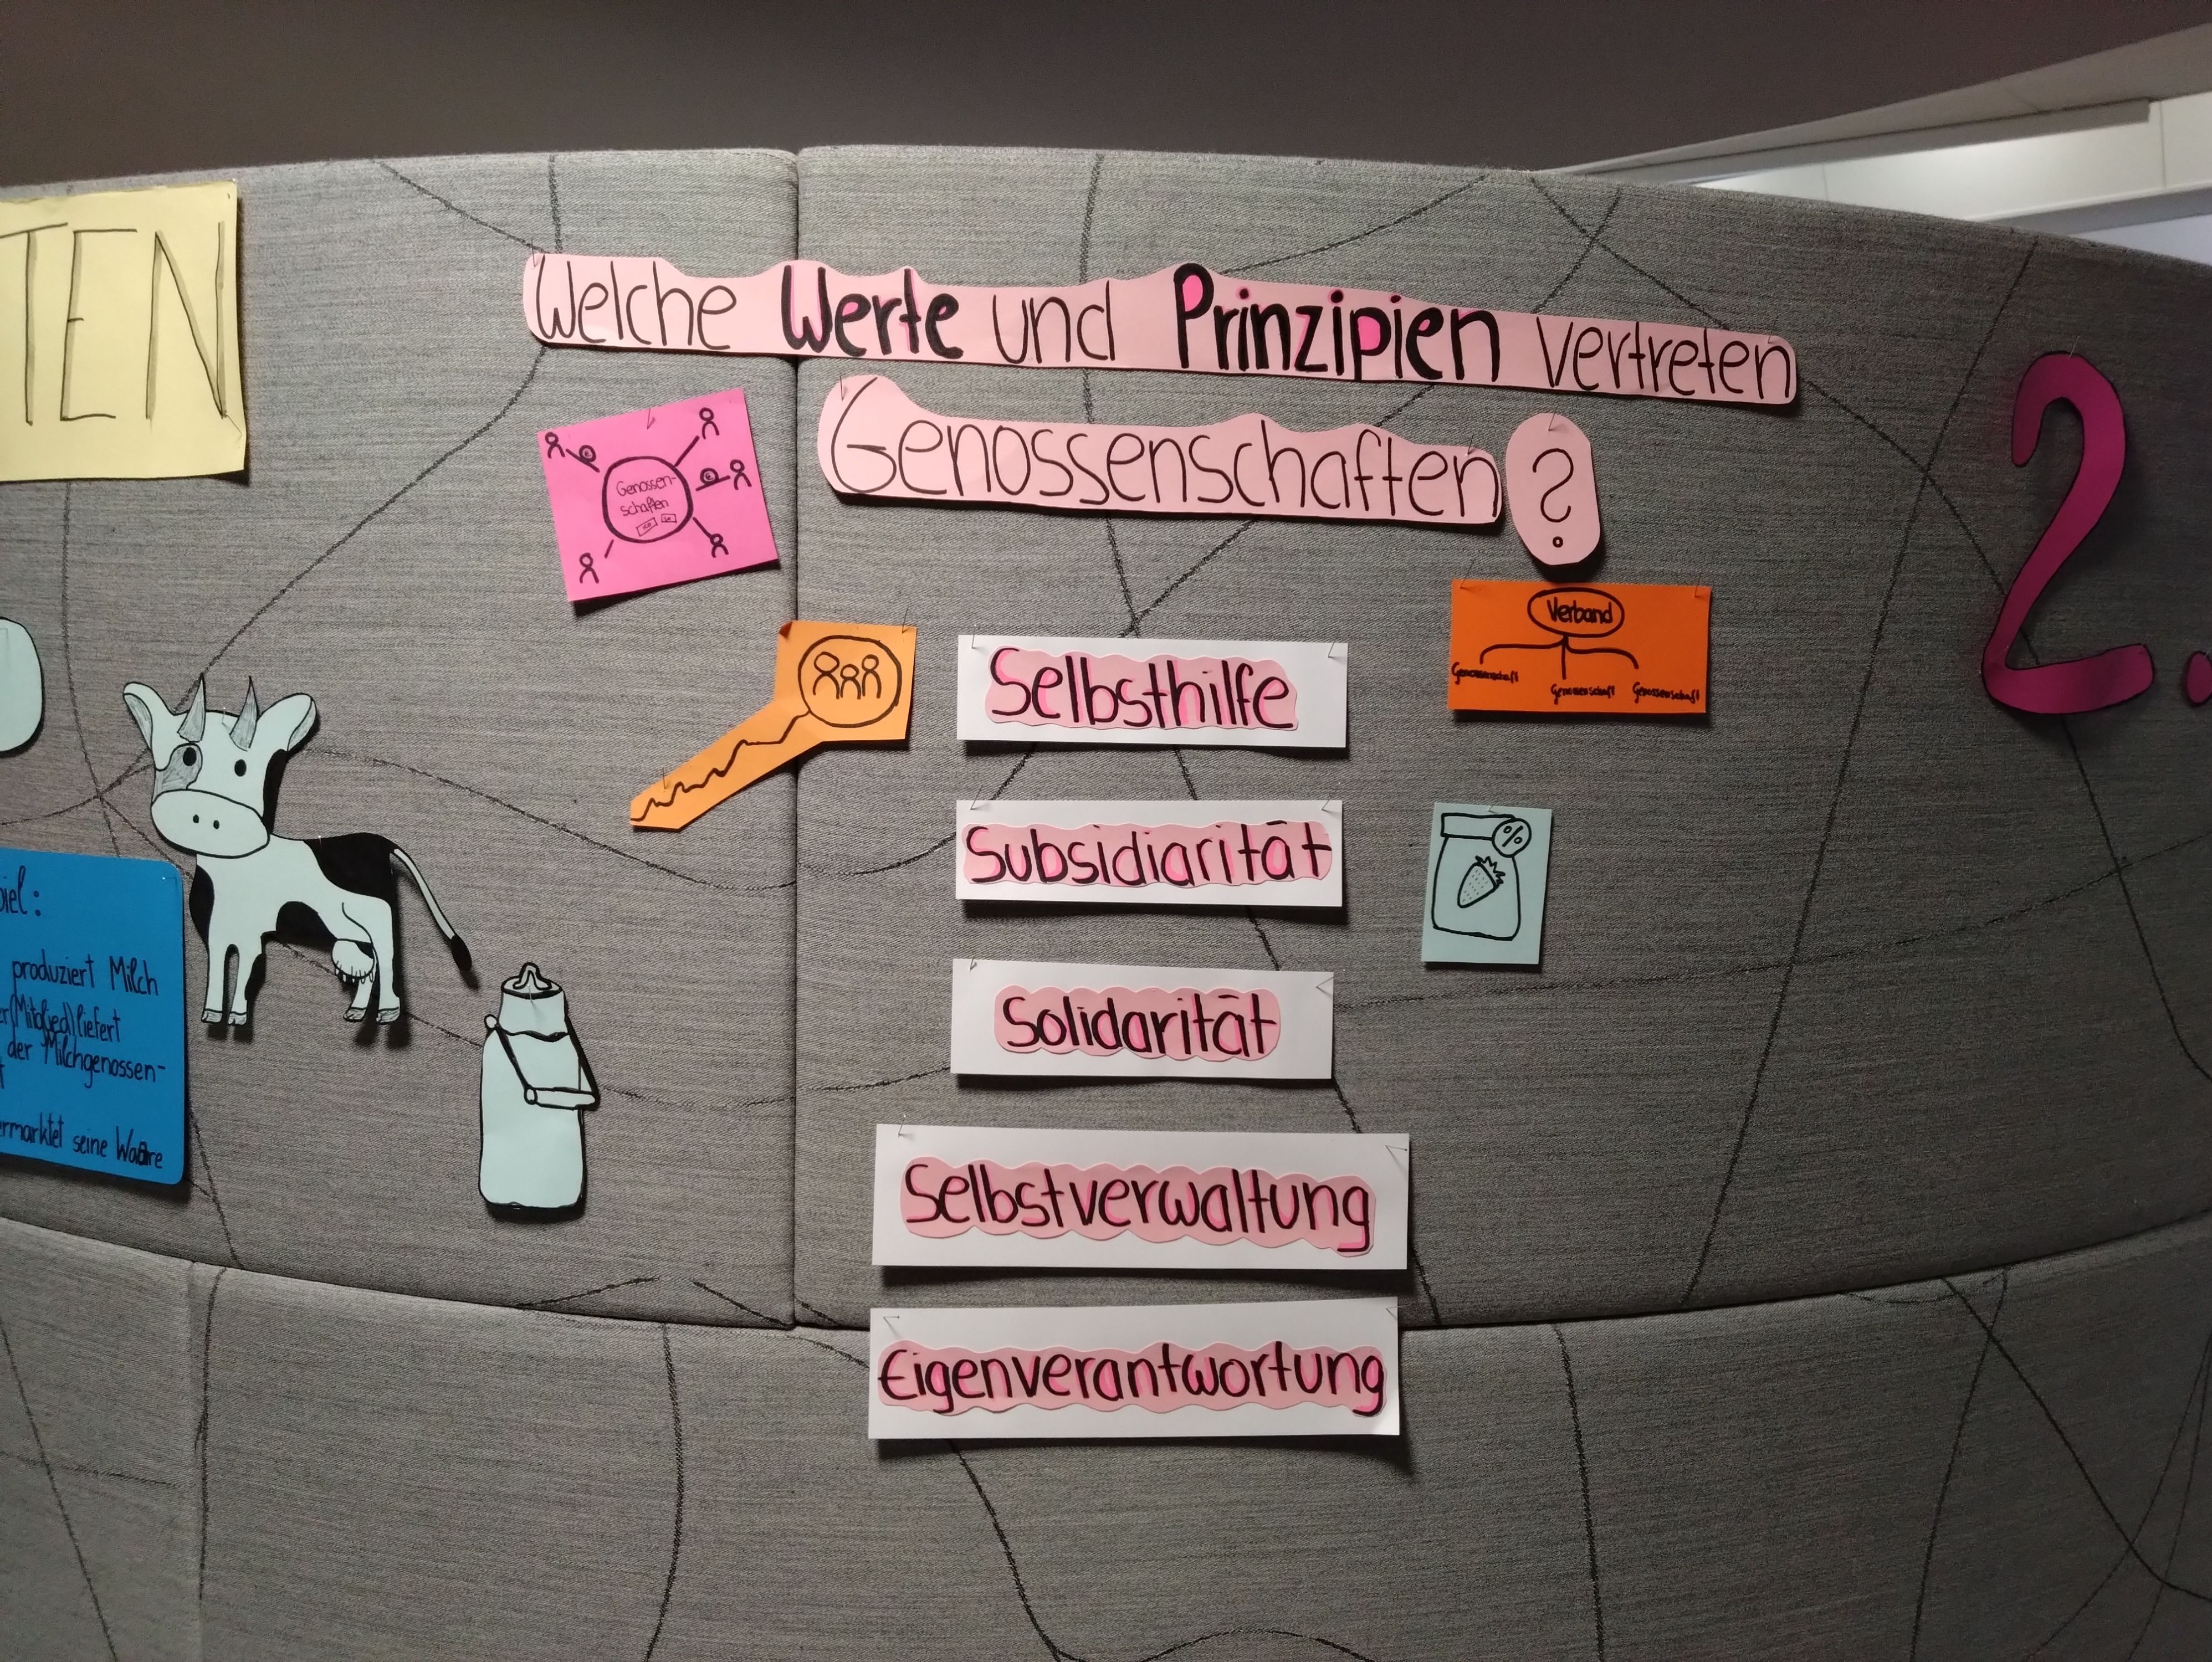 TEN
Welche Werte und Prinzipien vertreten
Genossenschaften ?
2.
Genossen-
schaften
Verband
Genossenschaft
Genossenschaft
Genossenschaft
Selbsthilfe
Subsidiarität
%
Solidarität
Selbstverwaltung
Eigenverantwortung
iel:
produziert Milch
er (Mitglied) liefert
der Milchgenossen-
t
ermarktet seine Waare